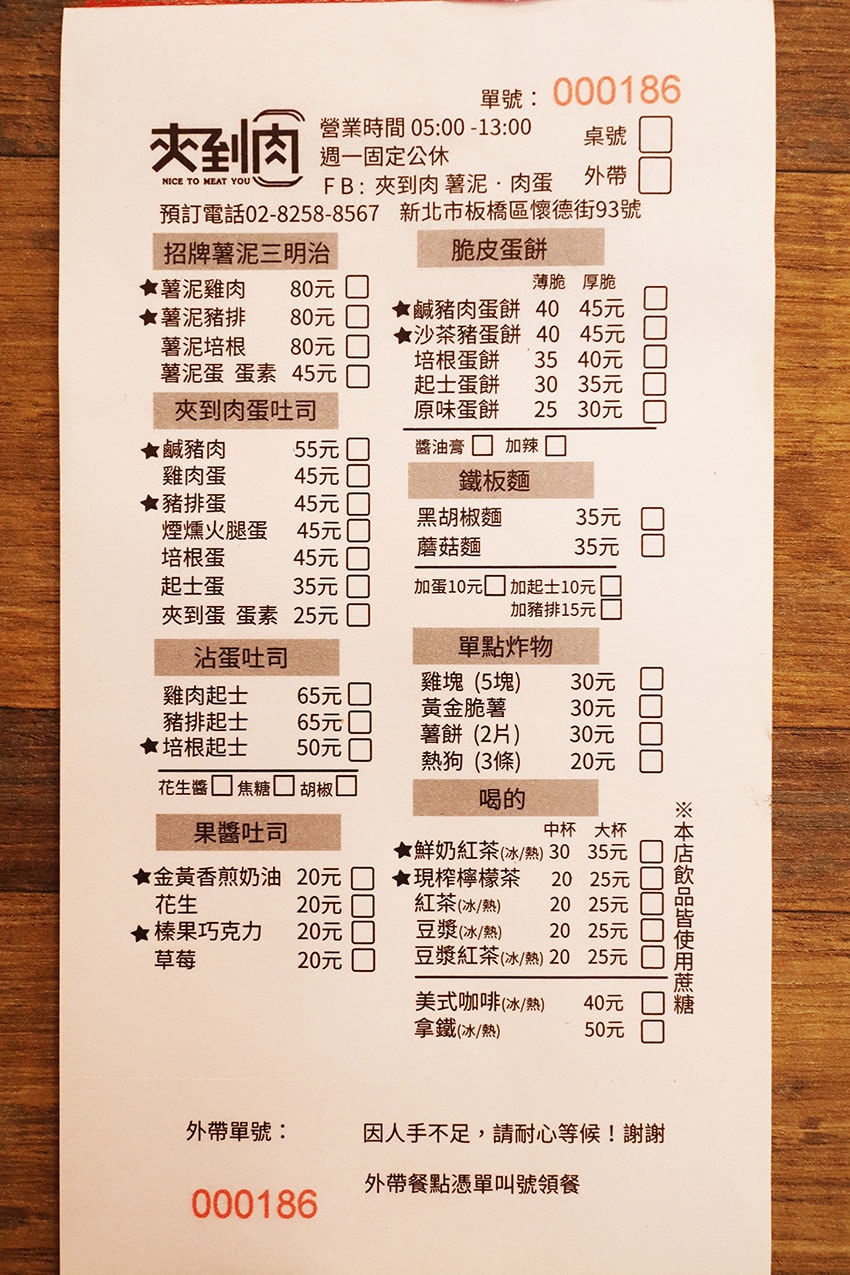 單號： 000186
夾到肉
NICE TO MEAT YOU
營業時間 05:00 -13:00
週一固定公休
FB: 夾到肉 薯泥·肉蛋
桌號
外帶
預訂電話02-8258-8567 新北市板橋區懷德街93號
招牌薯泥三明治
★薯泥雞肉 80元
★薯泥豬排 80元
薯泥培根 80元
薯泥蛋 蛋素 45元
夾到肉蛋吐司
★鹹豬肉 55元
雞肉蛋 45元
★豬排蛋 45元
煙燻火腿蛋 45元
培根蛋 45元
起士蛋 35元
夾到蛋 蛋素 25元
沾蛋吐司
雞肉起士 65元
豬排起士 65元
★培根起士 50元
花生醬 焦糖 胡椒
果醬吐司
★金黃香煎奶油 20元
花生 20元
★榛果巧克力 20元
草莓 20元
脆皮蛋餅
薄脆 厚脆
★鹹豬肉蛋餅 40 45元
★沙茶豬蛋餅 40 45元
培根蛋餅 35 40元
起士蛋餅 30 35元
原味蛋餅 25 30元
醬油膏 加辣
鐵板麵
黑胡椒麵 35元
蘑菇麵 35元
加蛋10元 加起士10元
加豬排15元
單點炸物
雞塊 (5塊) 30元
黃金脆薯 30元
薯餅 (2片) 30元
熱狗 (3條) 20元
喝的
中杯 大杯
★鮮奶紅茶(冰/熱) 30 35元
★現榨檸檬茶 20 25元
紅茶(冰/熱) 20 25元
豆漿(冰/熱) 20 25元
豆漿紅茶(冰/熱) 20 25元
美式咖啡(冰/熱) 40元
拿鐵(冰/熱) 50元
※本店飲品皆使用蔗糖
外帶單號：
000186
因人手不足，請耐心等候！謝謝
外帶餐點憑單叫號領餐